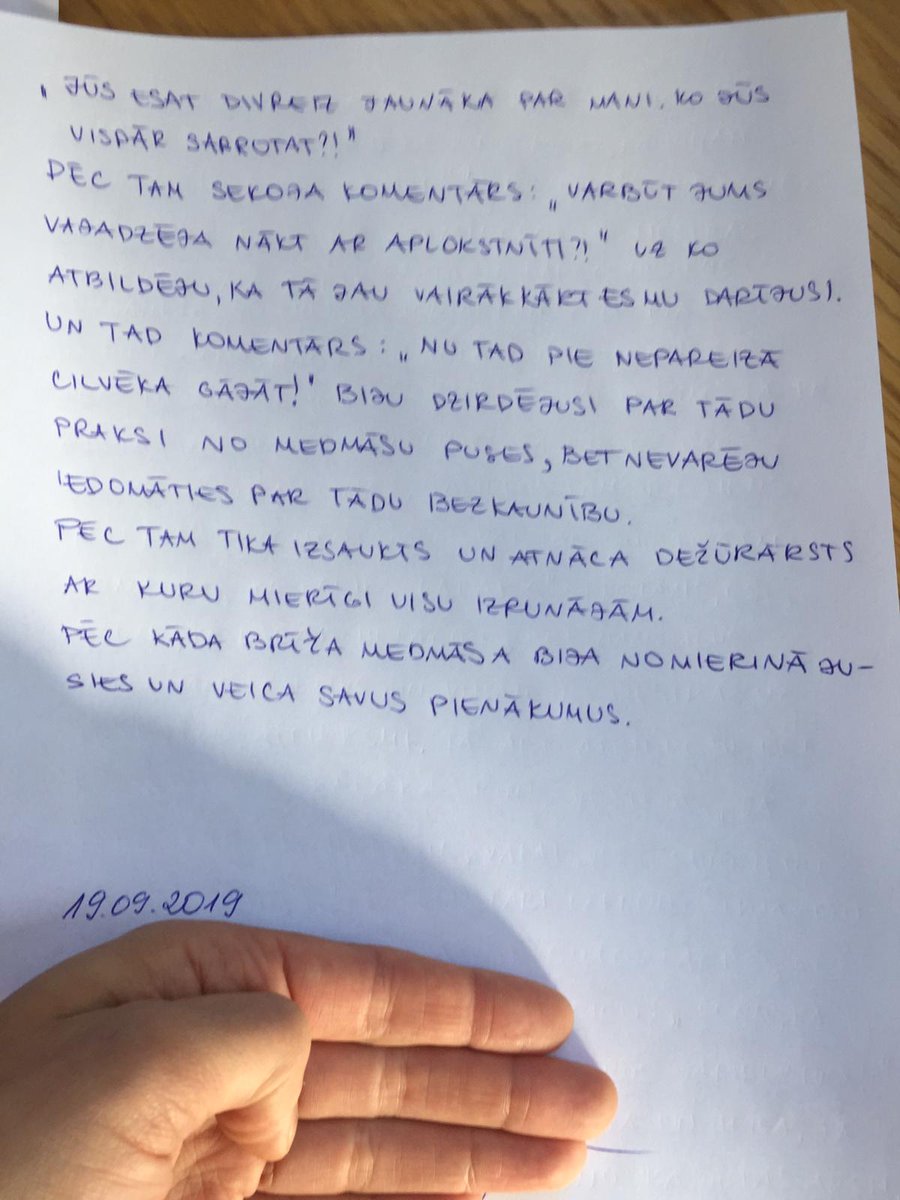 „JŪS ESAT DIVREIZ JAUNĀKA PAR MANI, KO JŪS
VISPĀR SAPROTAT?!"
PĒC TAM SEKOJA KOMENTĀRS: „VARBŪT JUMS
VAJADZĒJA NĀKT AR APLOKSTNĪTI?!" UZ KO
ATBILDĒJU, KA TĀ JAU VAIRĀKKĀRT ESMU DARĪJUSI.
UN TAD KOMENTĀRS: „NU TAD PIE NEPAREIZĀ
CILVĒKA GĀJĀT!" BIJU DZIRDĒJUSI PAR TĀDU
PRAKSI NO MEDMĀSU PUSES, BET NEVARĒJU
IEDOMĀTIES PAR TĀDU BEZKAUNĪBU.
PĒC TAM TIKA IZSAUKTS UN ATNĀCA DEŽŪRĀRSTS
AR KURU MIERĪGI VISU IZRUNĀJĀM.
PĒC KĀDA BRĪŽA MEDMĀSA BIJA NOMIERINĀJU-
SIES UN VEICA SAVUS PIENĀKUMUS.
19.09.2019